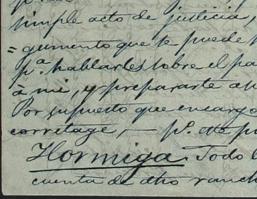 simple acto de justicia,
=gumento que te puede
pª hablarles sobre el pa
á mí, y prepararte a
Por supuesto que encarga
corretage, — pª
Hormiga. Todo l
cuenta de dho ranch